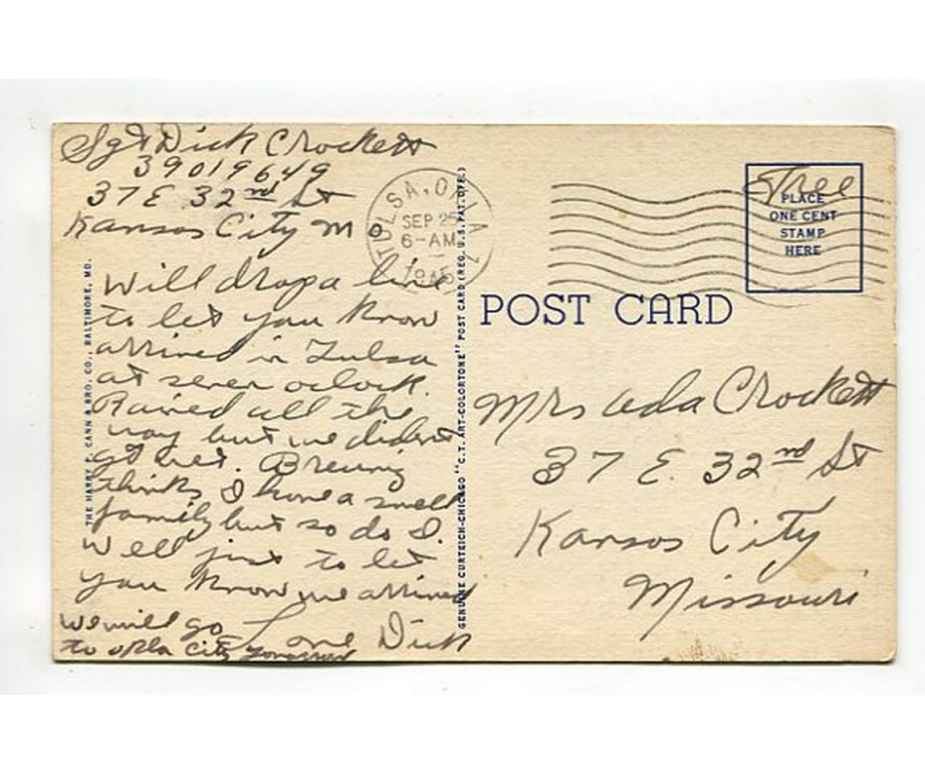 Sgt Dick Crockett
39019649
37 E. 32nd St
Kansas City Mo
Will drop a line
to let you know
arrived in Tulsa
at seven oclock.
Rained all the
way but we didn't
get wet. Breunig
thinks I have a swell
family but so do I.
Well just to let
you know we arrived
Love Dick
we will go
to okla City tomorrow
THE HARRY P. CANN & BRO. CO., BALTIMORE, MD.
GENUINE CURTEICH-CHICAGO "C.T. ART-COLORTONE" POST CARD (REG. U.S. PAT. OFF.)
TULSA, OKLA.
SEP 25
6-AM
1945
Free
PLACE
ONE CENT
STAMP
HERE
POST CARD
Mrs Ada Crockett
37 E. 32nd St
Kansas City
Missouri